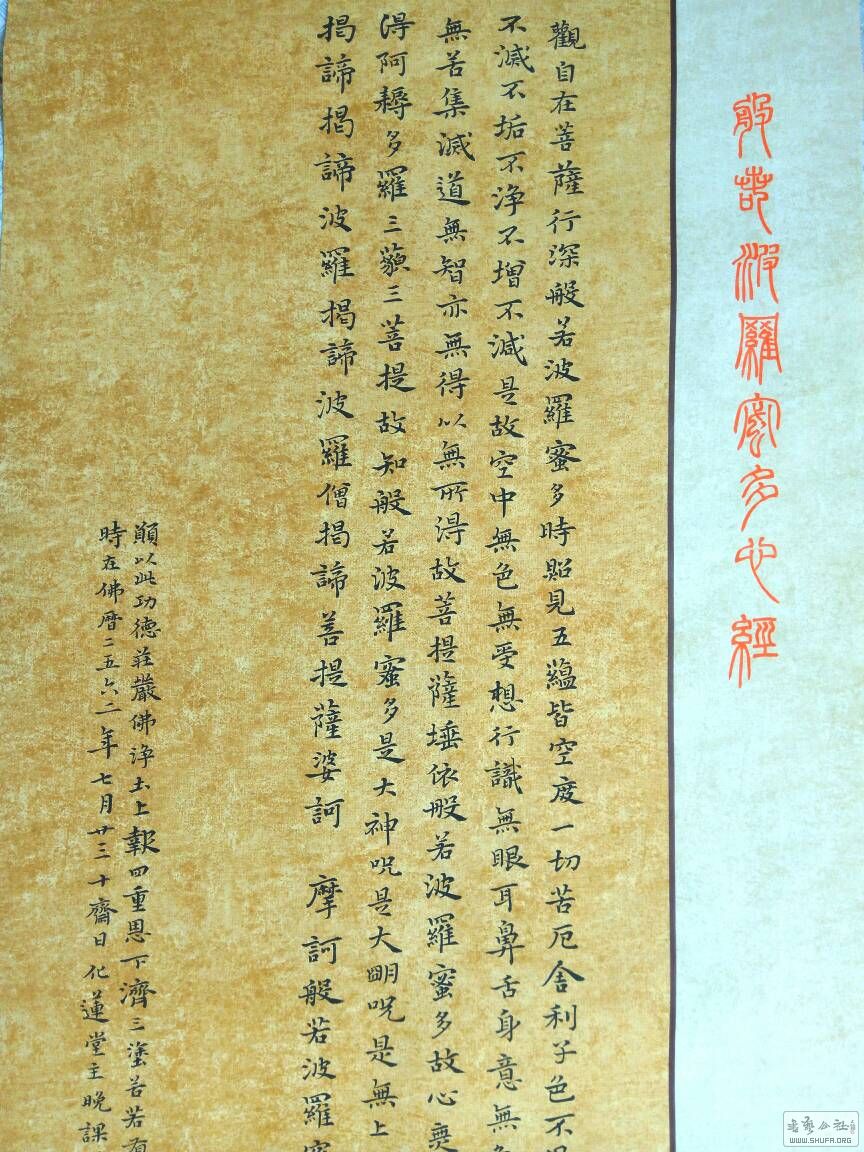 般若波羅蜜多心經
觀自在菩薩行深般若波羅蜜多時照見五蘊皆空度一切苦厄舍利子色不
不滅不垢不淨不增不減是故空中無色無受想行識無眼耳鼻舌身意無
無苦集滅道無智亦無得以無所得故菩提薩埵依般若波羅蜜多故心
得阿耨多羅三藐三菩提故知般若波羅蜜多是大神咒是大明咒是無上
揭諦揭諦波羅揭諦波羅僧揭諦菩提薩婆訶 摩訶般若波羅
願以此功德莊嚴佛淨土上報四重恩下濟三塗苦若有
時在佛曆二五六二年七月廿三十齋日化蓮堂主晚課
書藝公社
WWW.SHUFA.ORG